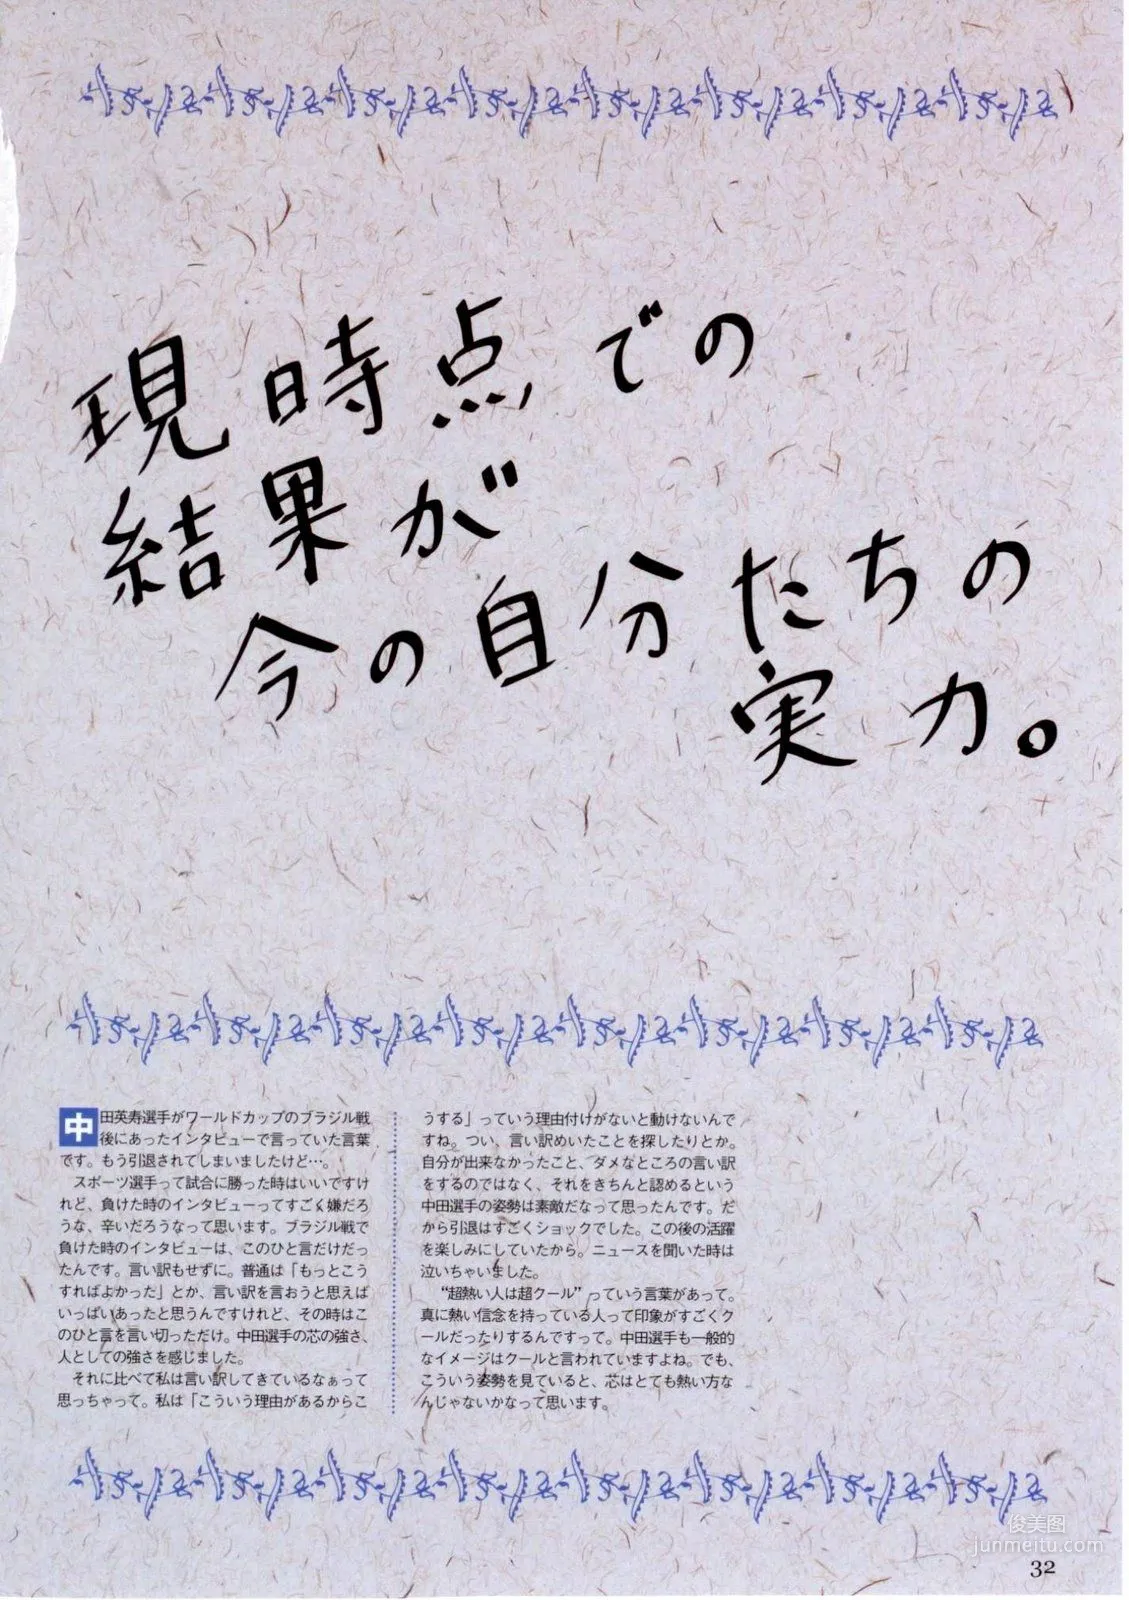 現時点での
結果が
今の自分たちの
実力。
中田英寿選手がワールドカップのブラジル戦
後にあったインタビューで言っていた言葉
です。もう引退されてしまいましたけど…。
スポーツ選手って試合に勝った時はいいですけ
れど、負けた時のインタビューってすごく嫌だろ
うな、辛いだろうなって思います。ブラジル戦で
負けた時のインタビューは、このひと言だけだっ
たんです。言い訳もせずに。普通は「もっとこう
すればよかった」とか、言い訳を言おうと思えば
いっぱいあったと思うんですけれど、その時はこ
のひと言を言い切っただけ。中田選手の芯の強さ、
人としての強さを感じました。
それに比べて私は言い訳してきているなぁって
思っちゃって。私は「こういう理由があるからこ
うする」っていう理由付けがないと動けないんで
すね。つい、言い訳めいたことを探したりとか。
自分が出来なかったこと、ダメなところの言い訳
をするのではなく、それをきちんと認めるという
中田選手の姿勢は素敵だなって思ったんです。だ
から引退はすごくショックでした。この後の活躍
を楽しみにしていたから。ニュースを聞いた時は
泣いちゃいました。
“超熱い人は超クール”っていう言葉があって。
真に熱い信念を持っている人って印象がすごくク
ールだったりするんですって。中田選手も一般的
なイメージはクールと言われていますよね。でも、
こういう姿勢を見ていると、芯はとても熱い方な
んじゃないかなって思います。
俊美图
junmeitu.com
32